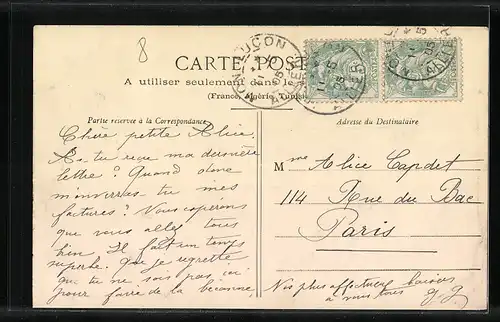 8
CARTE POST
A utiliser seulement dans le s
(France, Algérie, Tunisi
MONTLUÇON
ALLIER
Partie réservée à la Correspondance
Adresse du Destinataire
Chère petite Alice
As-tu reçu ma dernière
lettre? Quand donc
m'enverras tu mes
factures? Nous espérons
que vous allez tous
bien. Il fait un temps
superbe. Que je regrette
que tu ne sois pas ici
pour faire de la bécanne.
Mme Alice Capdet
114 Rue du Bac
Paris
Nos plus affectueux baisers
à vous tous G. G.